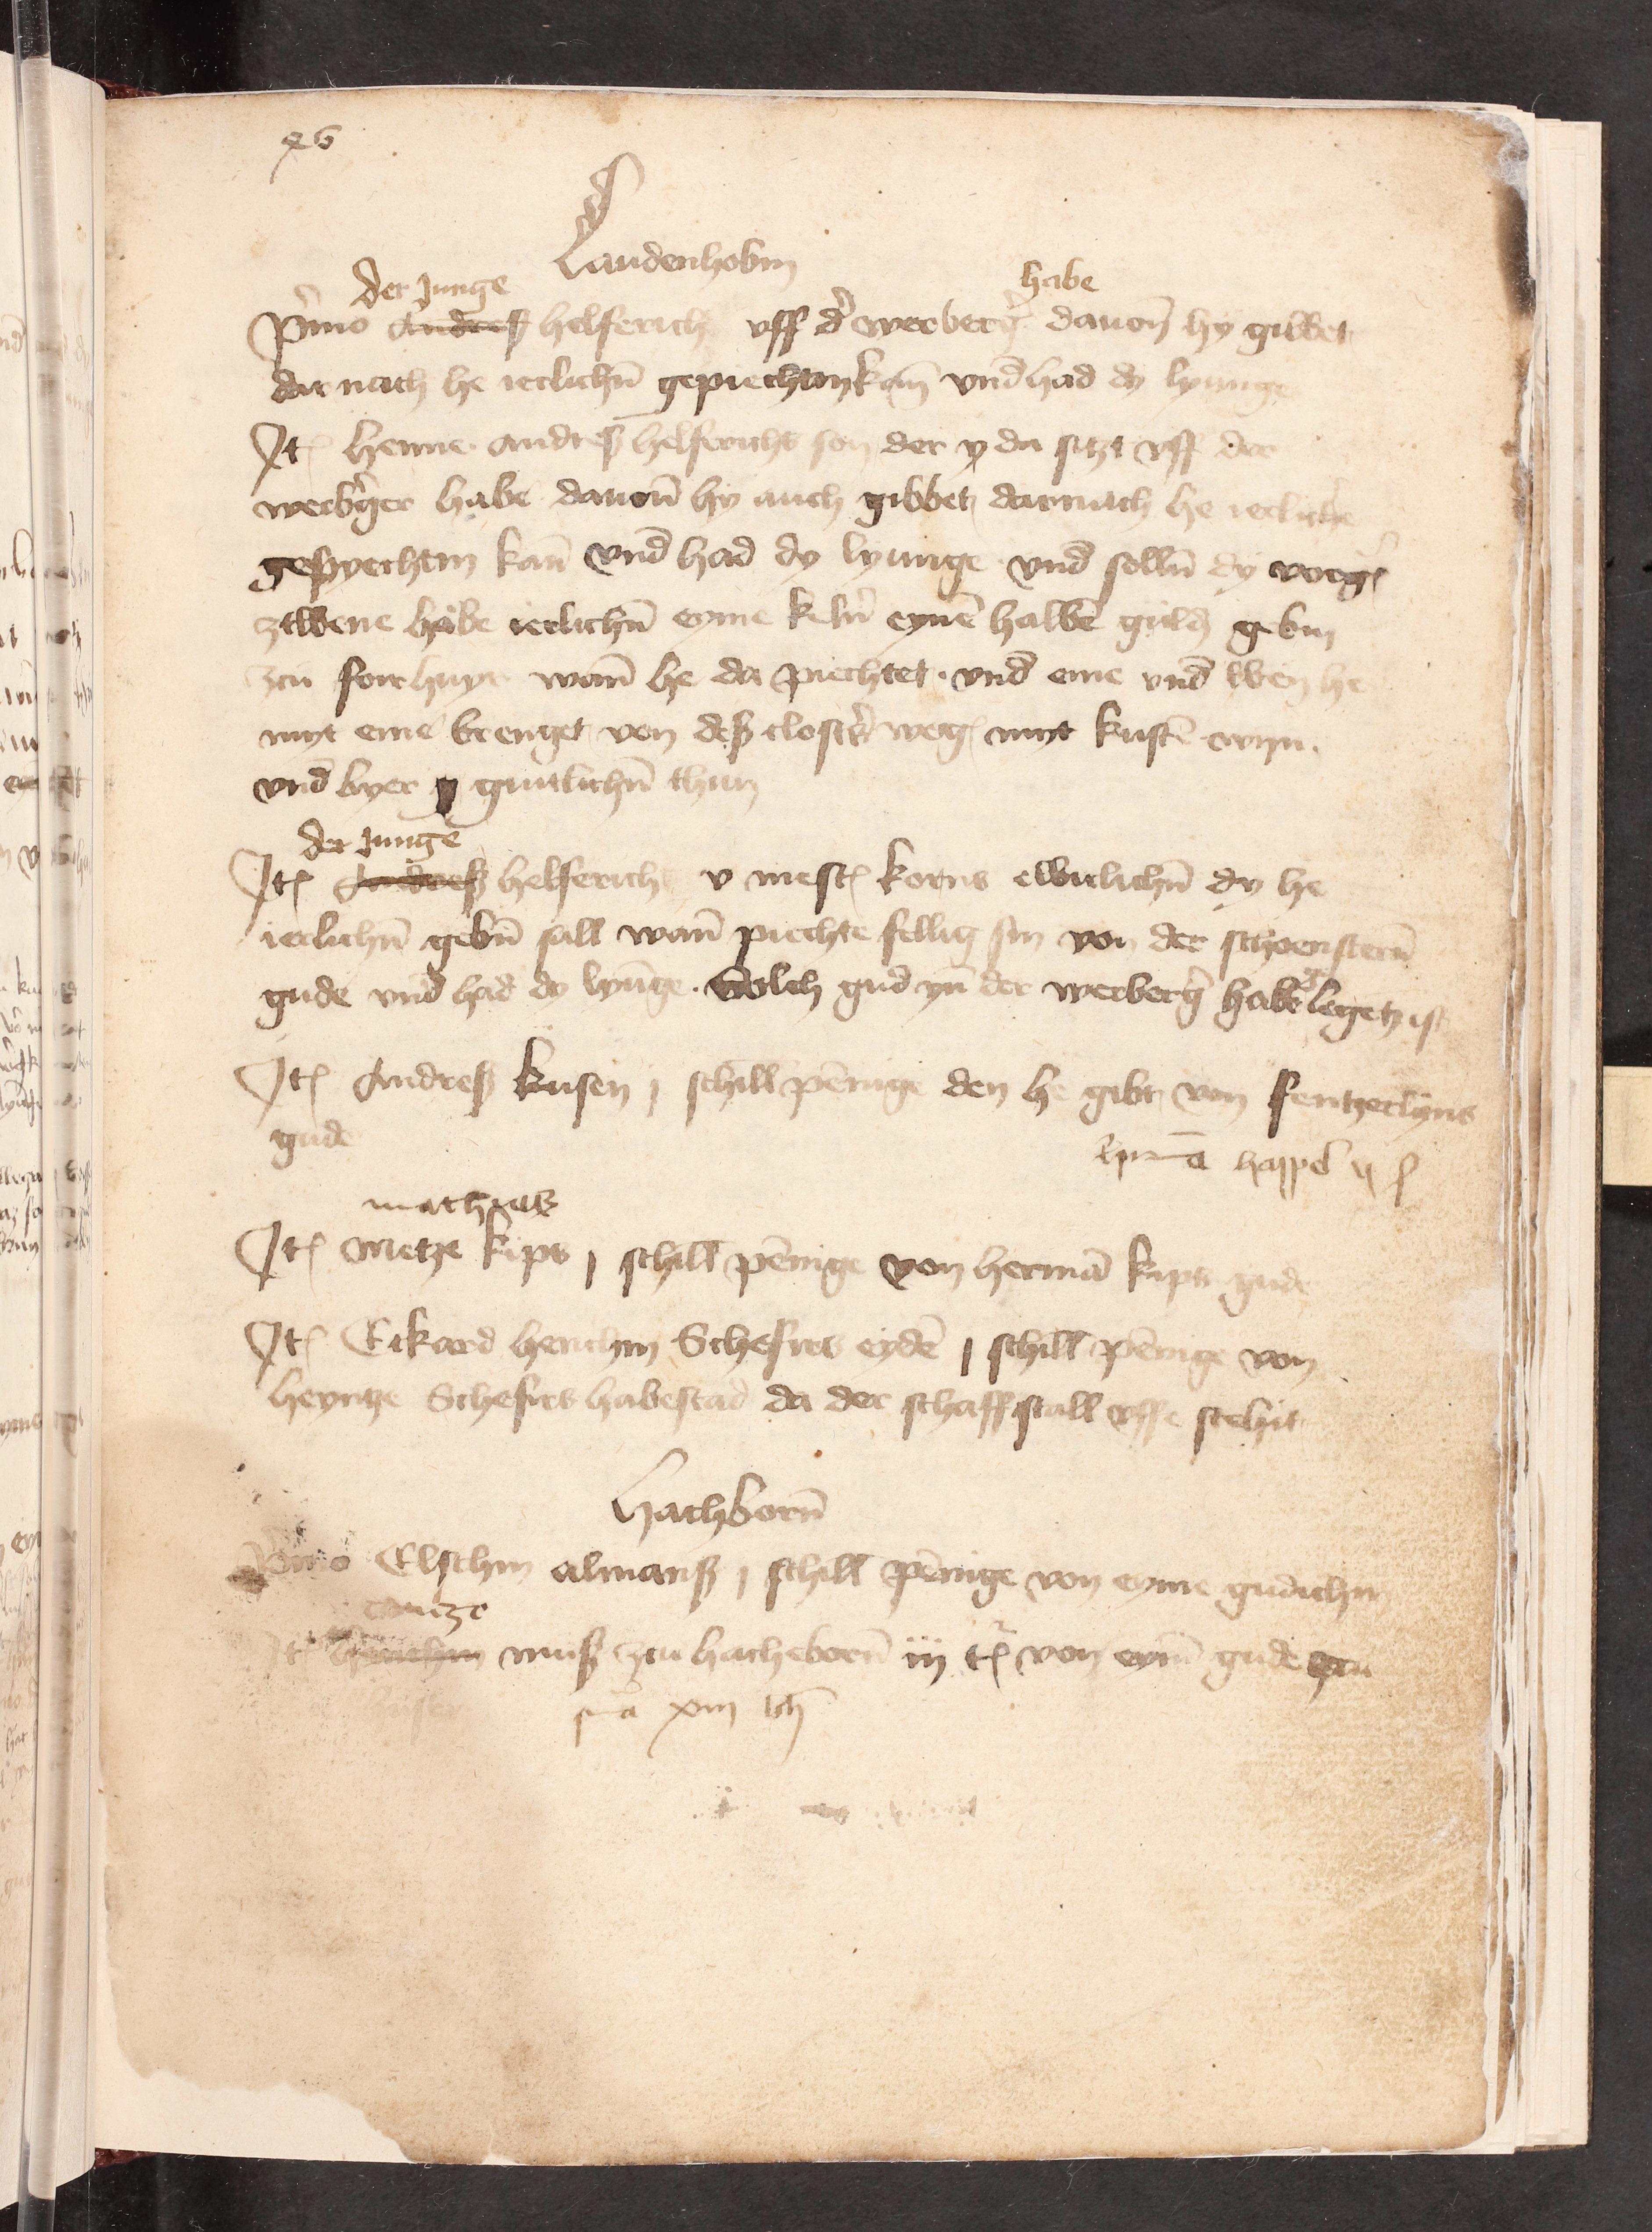 26
Laudenhobin
der Junge habe
P'mo Andreß helferich vff d' werberg' dauon hy gibbet
dar nach he ierlichn̄ gepiechtin kan̄ vnd had dy lyunge
Jt henne Andreß helferichs son der y da sitzt vff der
werb'ger habe dauon̄ hy auch gibbet darnach he ierliche
gepyechtin kan̄ vnd had dy lyunge vnd solln̄ dy vorg'
ztwene habe ierlichn̄ eyme keln' eynē halbē guld gebin
zcu forhuyr wan̄ he da piechtet vnd eme vnd wen he
myt eme brenget von deß closters weg myt kustē wyn
vnd byer gutlichn̄ thun
der Junge
Jt Andreß helferich v mest korns ewiclichn̄ dy he
ierlichn̄ gebn̄ sall wan̄ piechte fellig sin von der schoenstern̄
gude vnd had dy lyūge Solch gud yn̄ der werberg' habe legetz ist
Jt Andreß kusen j schill pēnige den he gibt von fentzerlyns
gude
happel
mathias
Jt Metze kips j schill pēnige von hermā kips gude
Jt Eckard henchin Schefirs eydē j schill pēnige von
heyntze Schefirs habestad da der schaffstall vffe stehit
Hachborn̄
P'mo Elschin almanß j schill pēnige von eyme gudichin
Contze
Jt henchin muß zcu hacheborn̄ iij t' von eym̄ gude zcu
sm̄a xiij